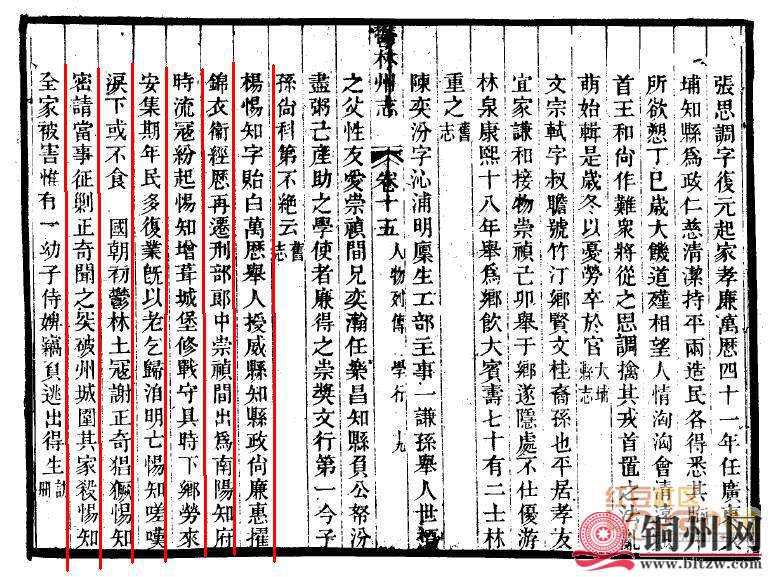 張思調字復元起家孝廉萬歷四十一年任廣東
埔知縣爲政仁慈清潔持平兩造民各得悉其
所欲懇丁巳歲大饑道殣相望人情洶洶會清
首王和尚作難衆將從之思調擒其戎首置之法
萌始輯是歲冬以憂勞卒於官大埔縣志
文宗軾字叔聸號竹汀鄉賢文桂裔孫也平居孝友
宜家謙和接物崇禎己卯舉于鄉遂隱處不仕優游
林泉康熙十八年舉爲鄉飲大賓壽七十有二士林
重之舊志
陳奕汾字沁浦明廩生工部主事一謙孫舉人世
鬱林州志 卷十五 人物列傳 學行 十九
之父性友愛崇禎間兄奕瀚任樂昌知縣負公帑汾
盡粥己產助之學使者廉得之崇獎文行第一今子
孫尚科第不絕云舊志
楊惕知字貽白萬歷舉人授威縣知縣政尚廉惠擢
錦衣衞經歷再遷刑部郎中崇禎間出爲南陽知府
時流寇紛起惕知增葺城堡修戰守具時下鄉勞來
安集期年民多復業旣以老乞歸洎明亡惕知嗟嘆
淚下或不食 國朝初鬱林土寇謝正奇猖獗惕知
密請當事征剿正奇聞之突破州城圍其家殺惕知
全家被害惟有一幼子侍婢竊負逃出得生訪册
铜州网
www.bltzw.com